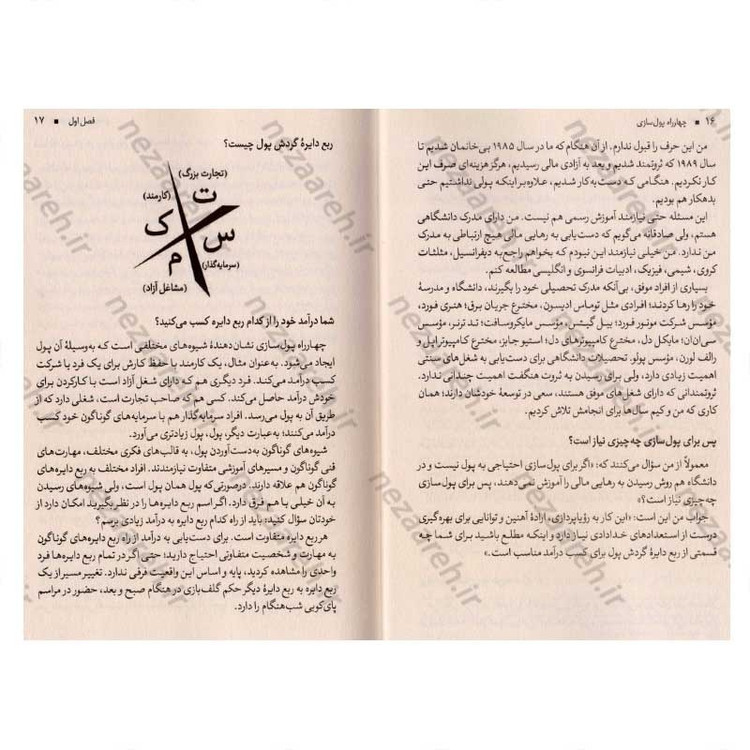 ۱۶ ■ چهارراه پول‌سازی
من این حرف را قبول ندارم. از آن هنگام که ما در سال ۱۹۸۵ بی‌خانمان شدیم تا
سال ۱۹۸۹ که ثروتمند شدیم و بعد به آزادی مالی رسیدیم، هرگز هزینه‌ای صرف این
کار نکردیم. هنگامی که دست‌به‌کار شدیم، علاوه‌بر اینکه پولی نداشتیم حتی
بدهکار هم بودیم.
این مسئله حتی نیازمند آموزش رسمی هم نیست. من دارای مدرک دانشگاهی
هستم، ولی صادقانه می‌گویم که دست‌یابی به رهایی مالی هیچ ارتباطی به مدرک
من ندارد. من خیلی نیازمند این نبودم که بخواهم راجع‌به دیفرانسیل، مثلثات
کروی، شیمی، فیزیک، ادبیات فرانسوی و انگلیسی مطالعه کنم.
بسیاری از افراد موفق، بی‌آنکه مدرک تحصیلی خود را بگیرند، دانشگاه و مدرسهٔ
خود را رها کردند؛ افرادی مثل توماس ادیسون، مخترع جریان برق؛ هنری فورد،
مؤسس شرکت موتور فورد؛ بیل گیتس، مؤسس مایکروسافت؛ تد ترنر، مؤسس
سی‌ان‌ان؛ مایکل دل، مخترع کامپیوترهای دل؛ استیو جابز، مخترع کامپیوتر اپل و
رالف لورن، مؤسس پولو. تحصیلات دانشگاهی برای دست‌یابی به شغل‌های سنتی
اهمیت زیادی دارد، ولی برای رسیدن به ثروت هنگفت اهمیت چندانی ندارد.
ثروتمندانی که دارای شغل‌های موفق هستند، سعی در توسعهٔ خودشان دارند؛ همان
کاری که من و کیم سال‌ها برای انجامش تلاش کردیم.
پس برای پول‌سازی چه چیزی نیاز است؟
معمولاً از من سؤال می‌کنند که: «اگر برای پول‌سازی احتیاجی به پول نیست و در
دانشگاه هم روش رسیدن به رهایی مالی را آموزش نمی‌دهند، پس برای پول‌سازی
چه چیزی نیاز است؟»
جواب من این است: «این کار به رؤیاپردازی، ارادهٔ آهنین و توانایی برای بهره‌گیری
درست از استعدادهای خدادادی نیاز دارد و اینکه مطلع باشید برای شما چه
قسمتی از ربع دایرهٔ گردش پول برای کسب درآمد مناسب است.»
فصل اول ■ ۱۷
ربع دایرهٔ گردش پول چیست؟
(تجارت بزرگ)
(کارمند)
ت
ک
س
م
(سرمایه‌گذار)
(مشاغل آزاد)
شما درآمد خود را از کدام ربع دایره کسب می‌کنید؟
چهارراه پول‌سازی نشان‌دهندهٔ شیوه‌های مختلفی است که به‌وسیلهٔ آن پول
ایجاد می‌شود. به‌عنوان مثال، یک کارمند با حفظ کارش برای یک فرد یا شرکت
کسب درآمد می‌کند. فرد دیگری هم که دارای شغل آزاد است با کارکردن برای
خودش درآمد حاصل می‌کند. کسی هم که صاحب تجارت است، شغلی دارد که از
طریق آن به پول می‌رسد. افراد سرمایه‌گذار هم با سرمایه‌های گوناگون خود کسب
درآمد می‌کنند؛ به‌عبارت دیگر، پول، پول زیادتری می‌آورد.
شیوه‌های گوناگون به‌دست‌آوردن پول، به قالب‌های فکری مختلف، مهارت‌های
فنی گوناگون و مسیرهای آموزشی متفاوت نیازمندند. افراد مختلف به ربع دایره‌های
گوناگون هم علاقه دارند. درصورتی‌که پول همان پول است، ولی شیوه‌های رسیدن
به آن خیلی با هم فرق دارد. اگر اسم ربع دایره‌ها را در نظر بگیرید امکان دارد از
خودتان سؤال کنید: باید از راه کدام ربع دایره به درآمد زیادی برسم؟
هر ربع دایره متفاوت است. برای دست‌یابی به درآمد از راه ربع دایره‌های گوناگون
به مهارت و شخصیت متفاوتی احتیاج دارید؛ حتی اگر در تمام ربع دایره‌ها فرد
واحدی را مشاهده کردید، پایه و اساس این واقعیت فرقی ندارد. تغییر مسیر از یک
ربع دایره به ربع دایرهٔ دیگر حکم گلف‌بازی در هنگام صبح و بعد، حضور در مراسم
پای‌کوبی شب‌هنگام را دارد.
nezaareh.ir